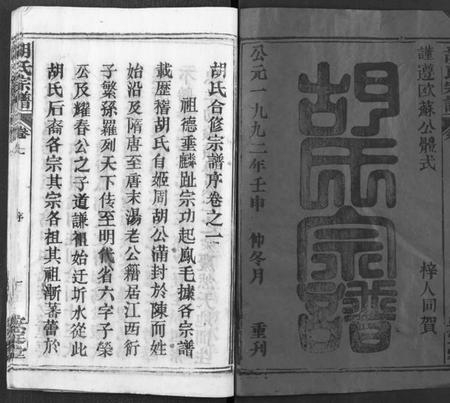 謹遵歐蘇公體式
胡氏宗譜
梓人同賀
公元一九九二年壬申 仲冬月 重刊
胡氏合修宗譜序卷之一
祖德垂麟趾宗功起鳳毛據各宗譜
載歷稽胡氏自姬周胡公滿封於陳而姓
始沿及隋唐至唐末湯老公籍居江西衍
子繁孫羅列天下傳至明代省六字子榮
公及耀春公之子道謙徂始迁圻水從此
胡氏后裔各宗其宗各祖其祖漸蕃蕾於
胡氏宗譜
卷之一
序